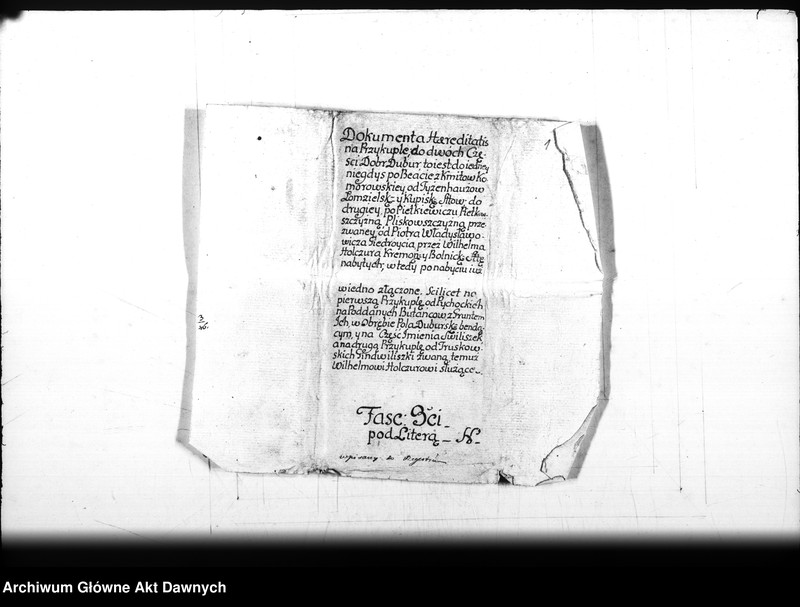 Dokumenta Hæreditatis
na Przykuplę do dwoch Czę-
sci Dobr Dubur to iest do iedney
niegdys po Beacie z Kmitow Ko
morowskiey od Tyzenhauzow
Łomzielsk: y Kupiskę Sttow: do
drugiey po Pietkiewiczu Pietkie
szczyzną Pliskowszczyzną prze
zwaney od Piotra Władysławo-
wicza Giedroycia przez Wilhelma
Holczura Kremon: y Bolnickę Sttę
nabytych; w tedy po nabyciu iuż
wiedno złączone. Scilicet na
pierwszą Przykuplę od Rychockich
na Poddanych Butancow z Gruntem
Ich, w Obrębie Pola Duburskę będą
cym, y na Część Imienia Swiliszek
a na drugą Przykuplę od Truskow
skich Gindwiliszki zwaną temuż
Wilhelmowi Holczurowi służące.
3
/36.
Fasc: 3ci
pod Literą H
wpisany do Regestru
Archiwum Główne Akt Dawnych